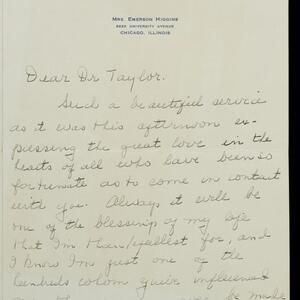 Mrs. Emerson Higgins
University Avenue
Chicago, Illinois
Dear Dr Taylor.
Such a beautiful service
as it was this afternoon ex-
pressing the great love in the
hearts of all who have been so
fortunate as to come in contact
with you. Always it will be
one of the blessings of my life
that I'm thankfullest for, and
I know I'm just one of the
hundreds whom you've influenced
be made